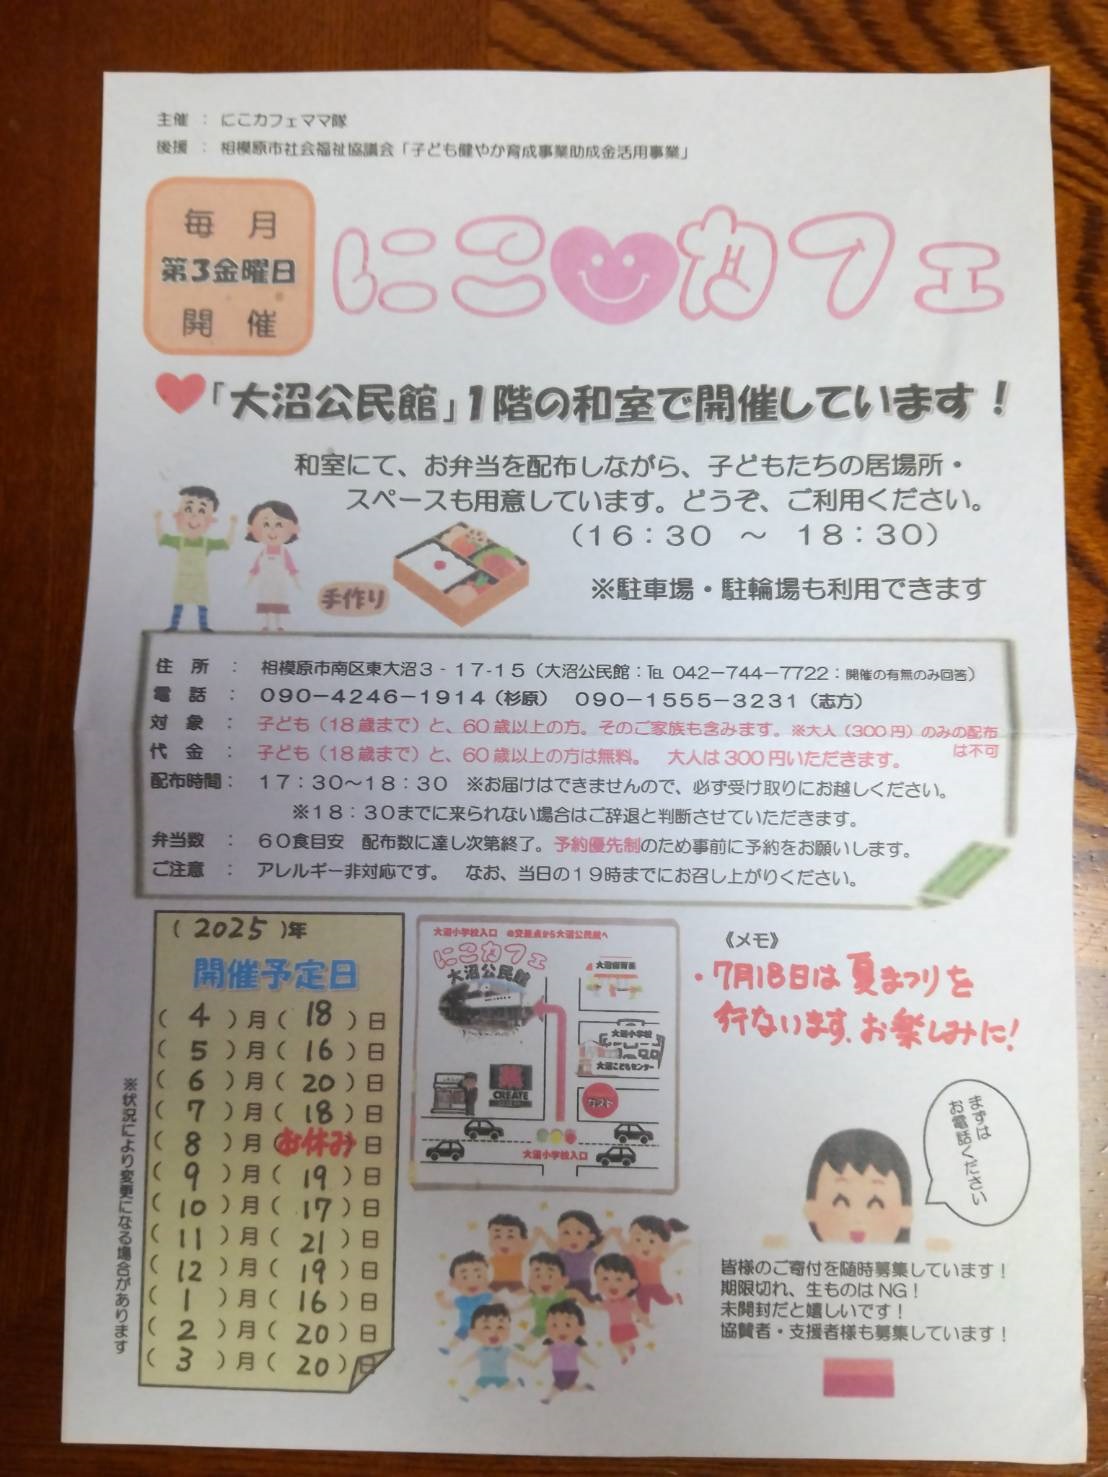 主催 ： にこカフェママ隊
後援 ： 相模原市社会福祉協議会「子ども健やか育成事業助成金活用事業」
毎 月
第3金曜日
開 催
にこ カフェ
「大沼公民館」1階の和室で開催しています！
和室にて、お弁当を配布しながら、子どもたちの居場所・
スペースも用意しています。どうぞ、ご利用ください。
（１６：３０ ～ １８：３０）
手作り
※駐車場・駐輪場も利用できます
住 所 ： 相模原市南区東大沼３‐１７‐１５（大沼公民館：℡ 042－744－7722：開催の有無のみ回答）
電 話 ： ０９０－４２４６－１９１４（杉原） ０９０－１５５５－３２３１（志方）
対 象 ： 子ども（18歳まで）と、60歳以上の方。そのご家族も含みます。※大人（300円）のみの配布は不可
代 金 ： 子ども（18歳まで）と、60歳以上の方は無料。 大人は300円いただきます。
配布時間： １７：３０～１８：３０ ※お届けはできませんので、必ず受け取りにお越しください。
※１８：３０までに来られない場合はご辞退と判断させていただきます。
弁当数 ： ６０食目安 配布数に達し次第終了。予約優先制のため事前に予約をお願いします。
ご注意 ： アレルギー非対応です。 なお、当日の１９時までにお召し上がりください。
（ 2025 ）年
開催予定日
（ 4 ）月（ 18 ）日
（ 5 ）月（ 16 ）日
（ 6 ）月（ 20 ）日
（ 7 ）月（ 18 ）日
（ 8 ）月（お休み 日
（ 9 ）月（ 19 ）日
（ 10 ）月（ 17 ）日
（ 11 ）月（ 21 ）日
（ 12 ）月（ 19 ）日
（ 1 ）月（ 16 ）日
（ 2 ）月（ 20 ）日
（ 3 ）月（ 20 ）日
※状況により変更になる場合があります
大沼小学校入口 の交差点から大沼公民館へ
にこカフェ
大沼公民館
大沼保育園
大沼小学校
大沼こどもセンター
薬
CREATE
ガスト
大沼小学校入口
《メモ》
・7月18日は夏まつりを
行ないます。お楽しみに！
まずは
お電話ください
皆様のご寄付を随時募集しています！
期限切れ、生ものはNG！
未開封だと嬉しいです！
協賛者・支援者様も募集しています！